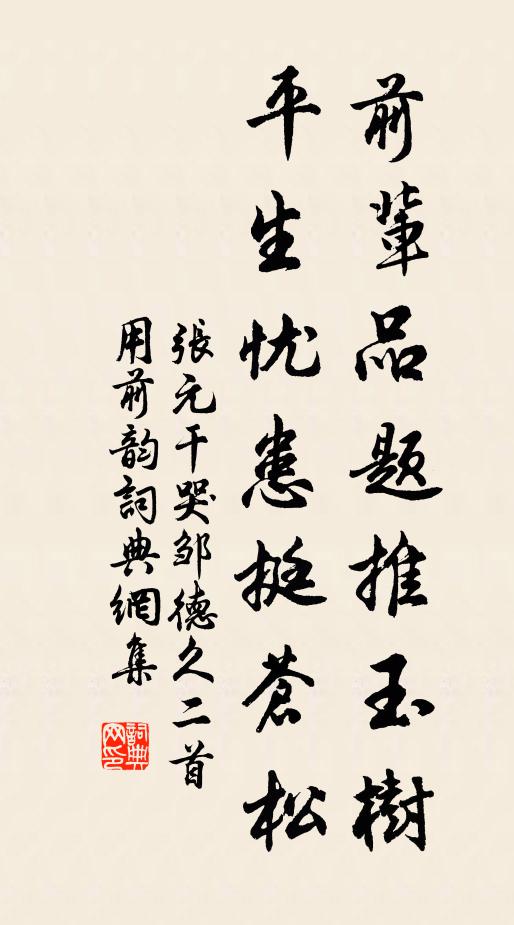 前輩品題推玉樹
平生忧患挺蒼松
張元干哭邹德久二首
用前韵詞典網集
詞典网印